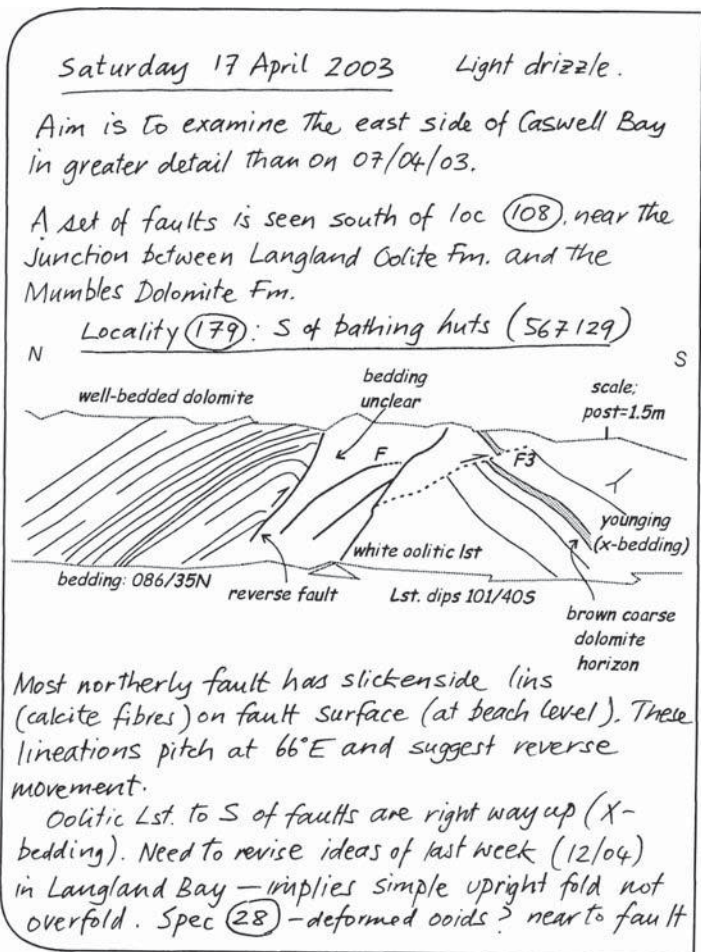 Saturday 17 April 2003 Light drizzle.
Aim is to examine the east side of Caswell Bay
in greater detail than on 07/04/03.
A set of faults is seen south of loc 108, near the
Junction between Langland Oolite Fm. and the
Mumbles Dolomite Fm.
Locality 179: S of bathing huts (567129)
N
S
well-bedded dolomite
bedding
unclear
scale;
post=1.5m
F
F3
younging
(x-bedding)
white oolitic lst
bedding: 086/35N
reverse fault
Lst. dips 101/40S
brown coarse
dolomite
horizon
Most northerly fault has slickenside lins
(calcite fibres) on fault surface (at beach level). These
lineations pitch at 66°E and suggest reverse
movement.
Oolitic Lst. to S of faults are right way up (X-
bedding). Need to revise ideas of last week (12/04)
in Langland Bay – implies simple upright fold not
overfold. Spec 28 – deformed ooids? near to fault